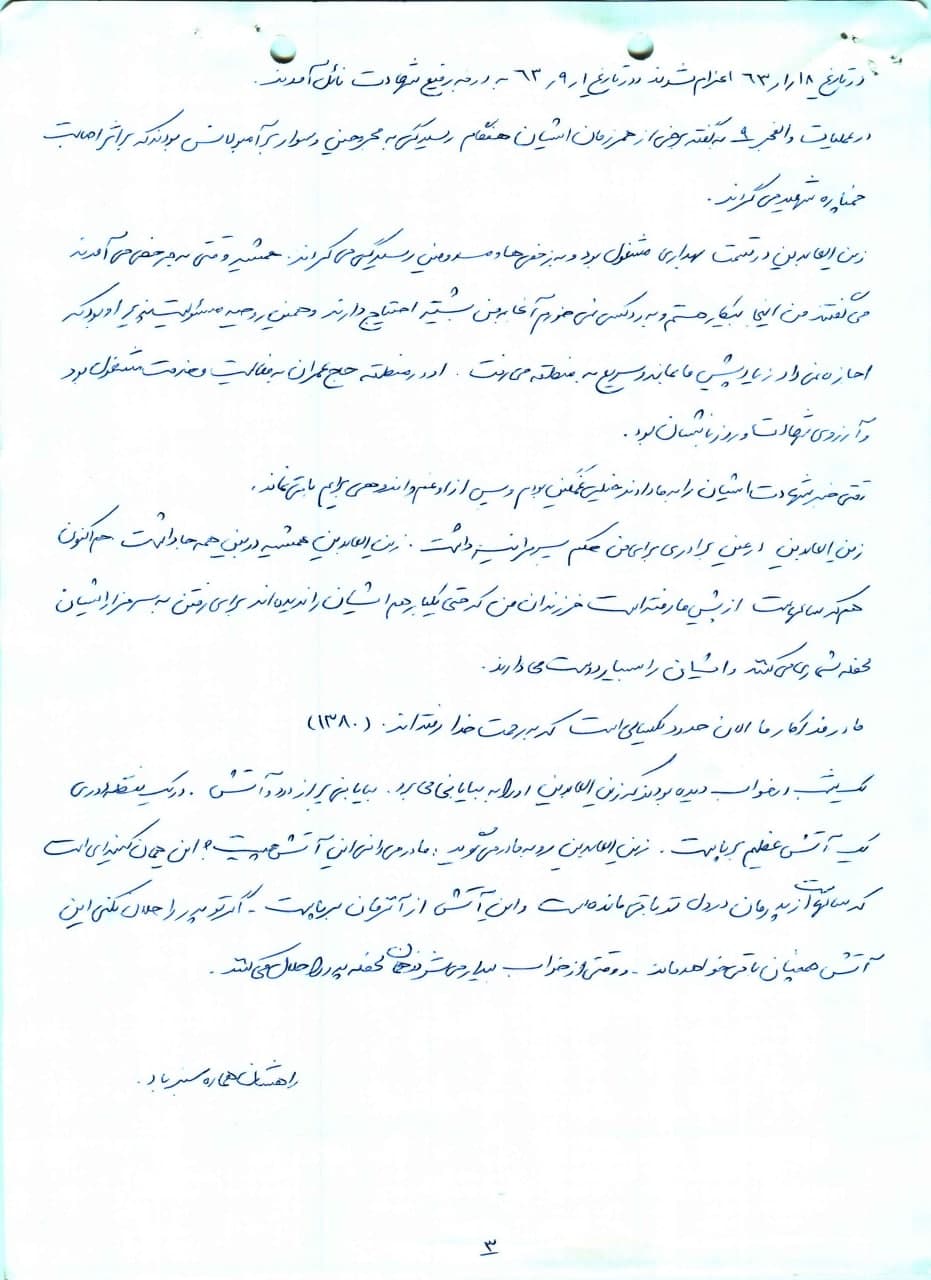 در تاریخ ۱۸ر۱ر۶۳ اعزام شدند و در تاریخ ۱ر۹ر۶۳ به درجه رفیع شهادت نائل آمدند.
در عملیات والفجر ۹ به گفته برخی از همرزمان ایشان هنگام رسیدگی به مجروحین و سوار بر آمبولانس بودند که بر اثر اصابت
خمپاره شهید می گردند.
زین العابدین در قسمت بهداری مشغول بود و به زخمی ها و مصدومین رسیدگی می کردند. همیشه وقتی به مرخصی می آمدند
می گفتند من اینجا بیکار هستم و به درد کسی نمی خورم آنجا به من بیشتر احتیاج دارند و همین روحیه مسئولیت پذیر او بود که
اجازه نمی داد زیاد پیش ما بماند و سریع به منطقه می رفت. او در منطقه حاج عمران به فعالیت و خدمت مشغول بود
و آرزوی شهادت ورد زبانشان بود.
وقتی خبر شهادت ایشان را به ما دادند خیلی غمگین بودم و پس از او غم و اندوهی برایم باقی نماند.
زین العابدین در عین برادری برای من حکم پسرم را نیز داشت. زین العابدین همیشه در بین همه جا داشت هم اکنون
هم که سالهاست از پیش ما رفته است فرزندان من که حتی یکبار هم ایشان را ندیده اند برای رفتن به سر مزار ایشان
لحظه شماری می کنند و ایشان را بسیار دوست می دارند.
مادر فداکار ما الان حدود یکسالی است که به رحمت خدا رفته اند. (۱۳۸۰)
یک شب در خواب دیده بودند که زین العابدین او را به بیابانی می برد. بیابانی پر از دود و آتش. در یک نقطه دوری
یک آتش عظیم برپاست. زین العابدین رو به مادر می گوید: مادر می دانی این آتش چیست؟ این همان کینه ای است
که سالهاست از پدرمان در دل تو باقی مانده است و این آتش از آن زمان برپاست - اگر تو پدر را حلال نکنی این
آتش همچنان باقی خواهد ماند - و وقتی از خواب بیدار می شوند همان لحظه پدر را حلال می کنند.
راهشان همواره سبز باد.
۳